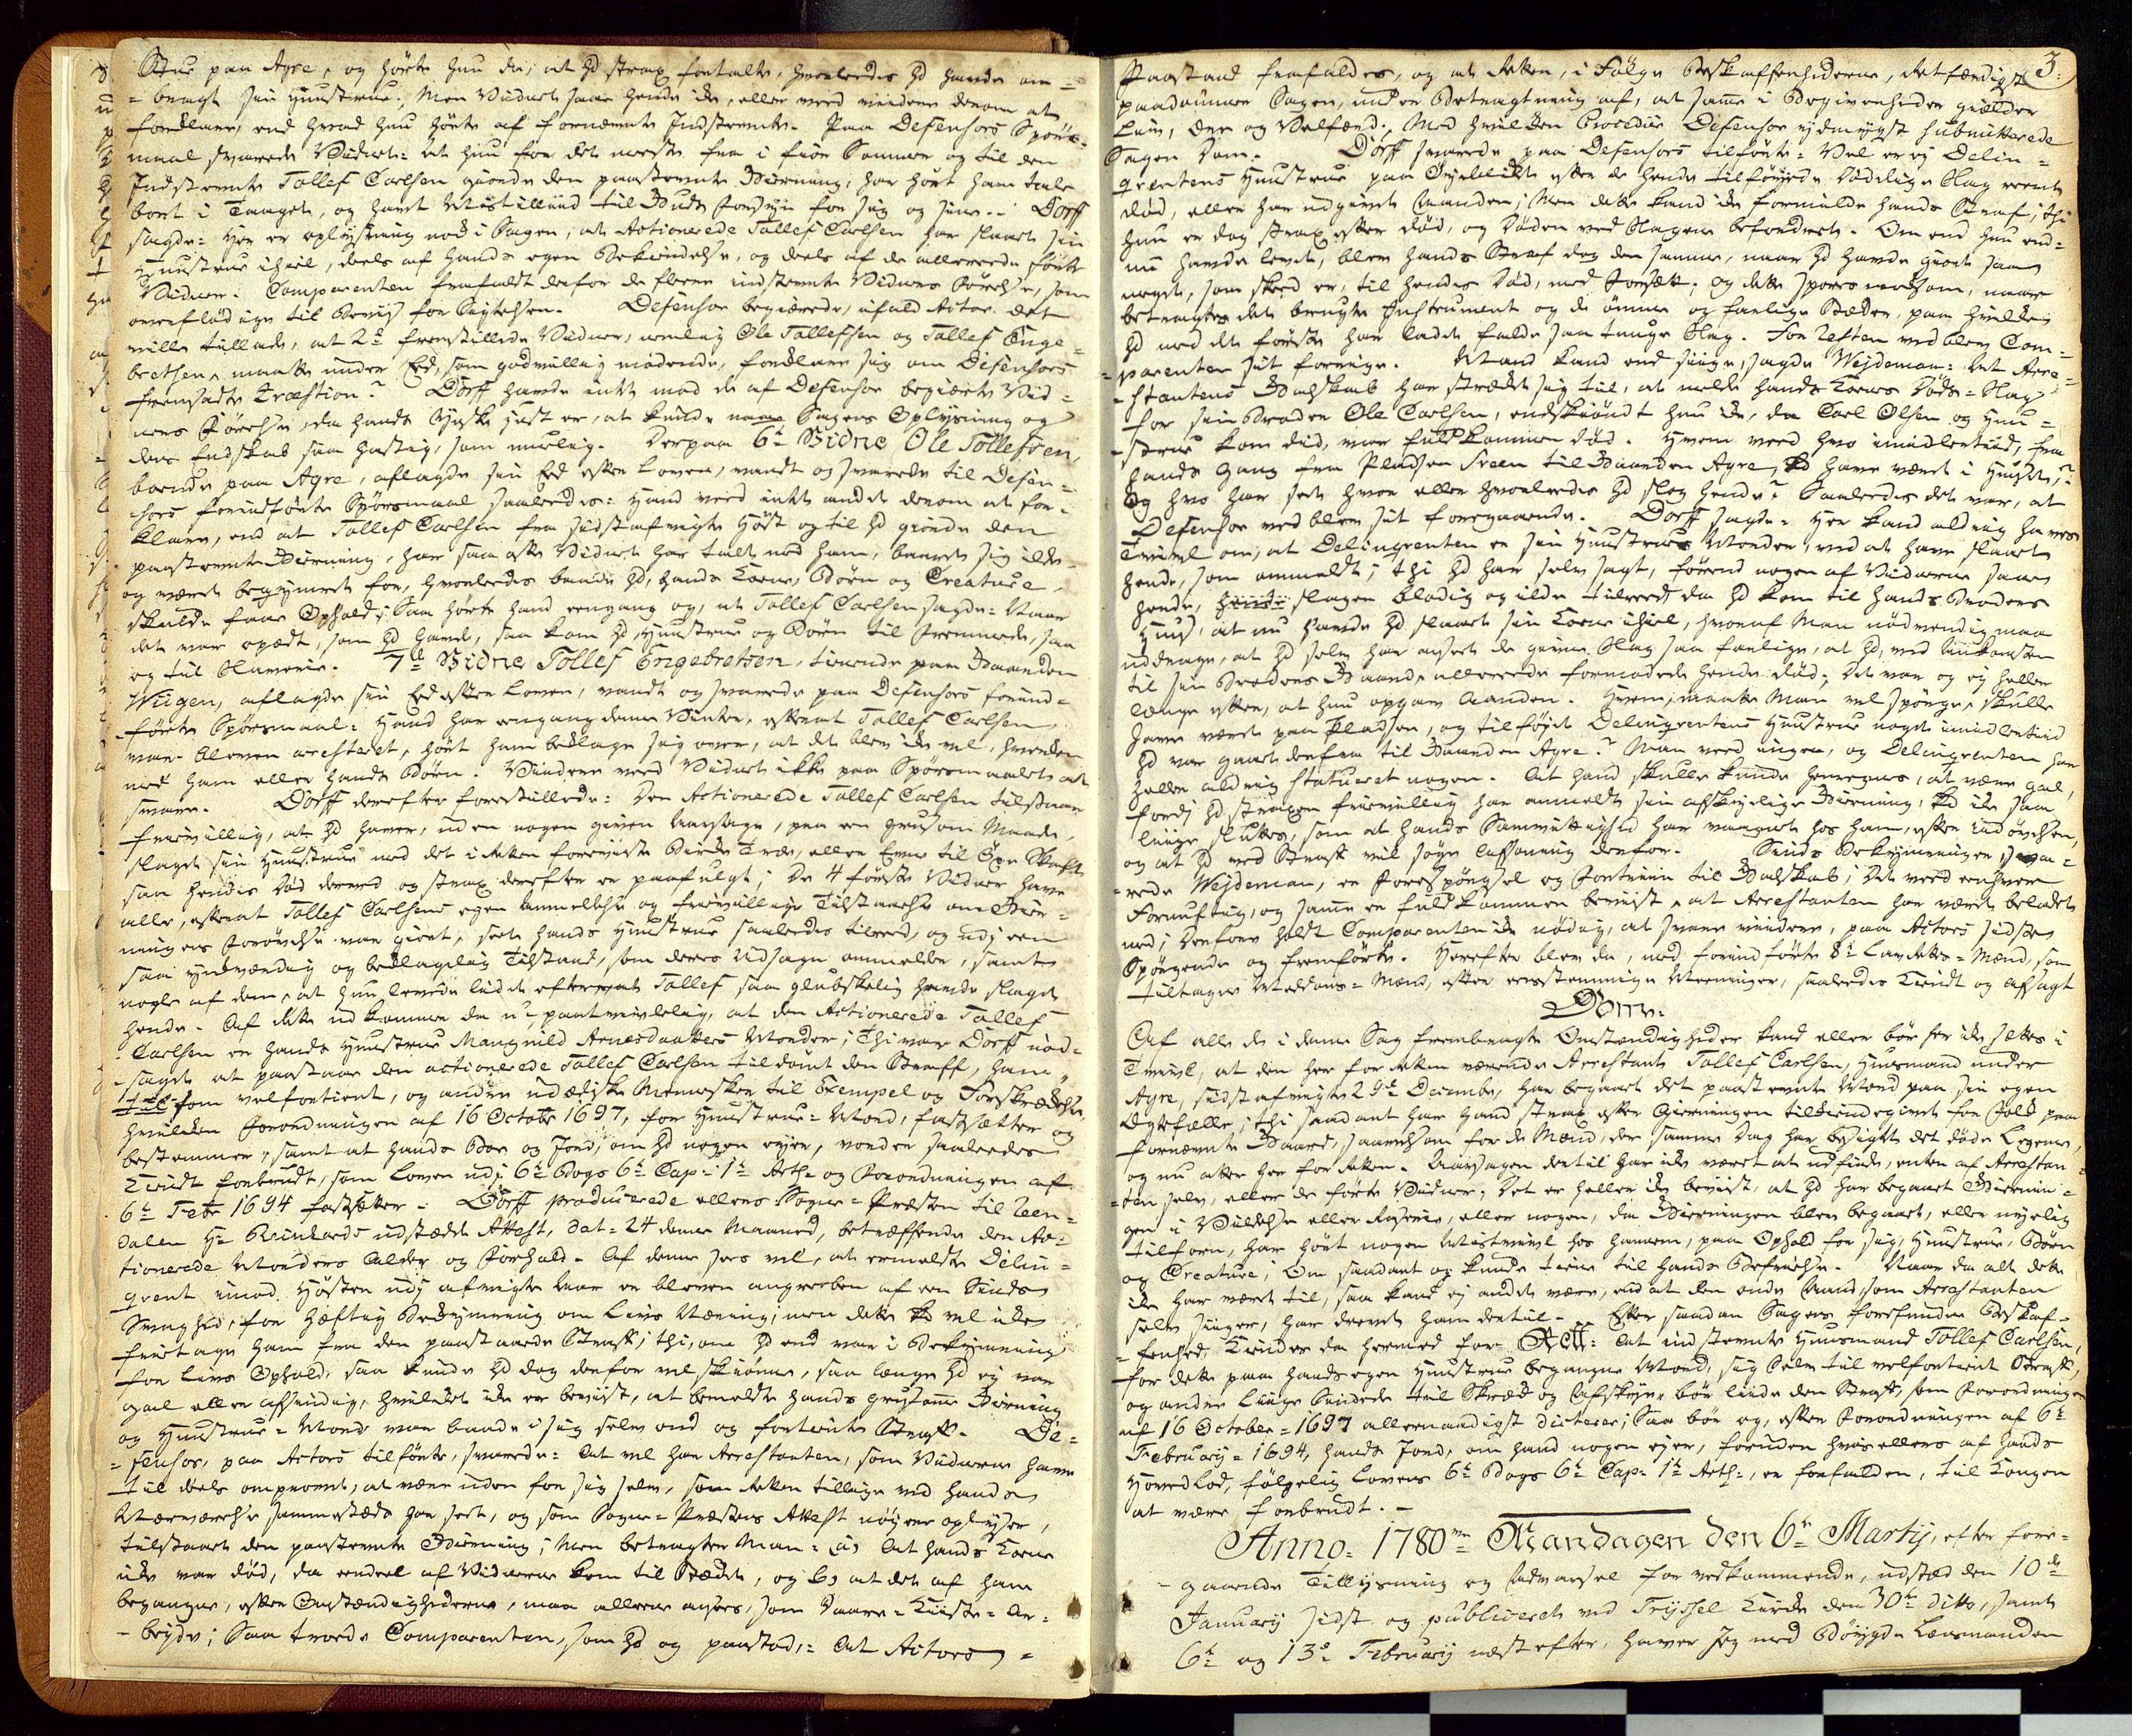 Stue paa Agre, og hörte hun da, at hd strax fortalte, hvorledes hd havde om=
=bragt sin Hustrue. Men Vidnet saae hende ikke, eller veed viidere derom at
forklare, end hvad hun hörte af fornævnte Indstevnte. Paa Defensors Spörs=
maal svarede Vidnet: At hun for det meste fra i fior Sommer og til den
Indstevnte Tollef Carlsen giorde den paastevnte Gierning, har hört ham tale
bort i Taaget, og havt Mistillid til Guds Forsyn for sig og sine. Dorff
sagde: Her er oplysning nok i Sagen, at Actionerede Tollef Carlsen har slaaet sin
Hustrue ihiel, deels af hands egen Bekiendelse, og deels af de allereede förte
Vidner. Comparenten frafaldt derfor de fleere indstevnte Vidners Förelse, som
overflödige til Beviis for Sigtelsen. Defensor begiærede, ifald Actor det
ville tillade, at 2de fremstillede Vidner, nemlig Ole Tollefsen og Tollef Enge=
bretsen, maatte under Eed, som godvillig mödende, forklare sig om Defensors
fremsadte Qvæstion? Dorff havde intet mod de af Defensor begiærte Vid=
ners Förelse, da hands Hyste just er, at kunde naae Sagens Oplysning og
dens Endskab saa hastig, som muelig. Derpaa 6te Vidne Ole Tollefsen,
boende paa Agre, aflagde sin Eed efter Loven, vandt og svarede til Defen=
sors forindförte Spörsmaal saaledes: Hand veed intet andet derom at for=
klare, end at Tollef Carlsen fra sidstafvigte Höst og til hd giorde den
paastevnte Gierning, har saa ofte Vidnet har talt med ham, baaret sig ilde
og været bekymret for, hvorledes baade hd, hands Kone, Börn og Creature
skulde faae Ophold; Saa hörte hand eengang og, at Tollef Carlsen sagde: Naar
det var opædt, som hd havde, saa kom hd, Hustrue og Börn til Fremmede, saa
og til Slaverie. 7de Vidne Tollef Engebretsen, tienende paa Gaarden
Wiigen, aflagde sin Eed efter Loven, vandt og svarede paa Defensors forind=
förte Spörsmaal: Hand har eengang denne Vinter, efterat Tollef Carlsen
var bleven arresteret, hört ham beklage sig over, at det blev ikke vel, hverken
med ham eller hands Börn. Viidere veed Vidnet ikke paa Spörsmaalet at
svare. Dorff derefter forestillede: Den Actionerede Tollef Carlsen tilstaar
frievillig, at hd haver, uden nogen given Aarsage, paa en grusom Maade,
slaget sin Hustrue med det i Retten foreviiste Birke Træe, eller Emne til Öxe Skaft
saa hendes Död derved og strax derefter er paafulgt; De 4 förste Vidner have
alle, efterat Tollef Carlsens egen anmeldelse og frievillige Tilstaaelse om Gier=
ningens Forövelse var giort, seet hands Hustrue saaledes tilreed, og udi een
saa ynkværdig og beklagelig Tilstand, som deres Udsagn ommelder, samt
nogle af dem, at hun levede lidet efterat Tollef saa glubskelig havde slaget
hende. Af dette udkommer da u-paatvivlelig, at den Actionerede Tollef
Carlsen er hands Hustrue Mangnild Arnesdaatters Morder; Thi var Dorff nöd=
saget at paastaae den actionerede Tollef Carlsen tildömt den Straff, ham,
som velfortient, og andre udædiske Mennesker til Exempel og Forskrækkelse,
hvilken Forordningen af 16 Octobr 1697, for Hustrue=Mord, fastsætter og
bestemmer, samt at hands Boe og Jord, om hd nogen eyer, vorder saaledes
kiendt forbrudt, som Loven udi 6te Bogs 6te Cap: 1te Art: og Forordningen af
6te Febr 1694 fastsetter. Dorff producerede ellers Sogne=Præsten til Reen=
dalen Hr Reinhards udstædde Attest, dat: 24 denne Maaned, betreffende den Ac=
tionerede Morders Alder og Forhold. Af denne sees vel, at ermeldte Delin=
qvent imod Hösten udi afvigte Aar er bleven angreeben af een Sinds
Svaghed, for hæftig Bekymring om Livs Næring; men dette kd vel ikke
frietage ham fra den paastaaede Straff; thi, om hd end var i Bekymring
for Livs Ophold, saa kunde hd dog derfor vel skiönne, saa længe hd ej var
gal eller affsindig, hvilket ikke er beviist, at bemeldte hands grusomme Gierning
og Hustrue=Mord var baade i sig selv ond og fortiente Straff. De=
=fensor, paa Actors tilförte, svarede: At vel har Arrestanten, som Vidnerne have
til deels omprovet, at være uden for sig selv, som Retten tillige ved hands
Nærværelse sammestæds har seet, og som Sogne=Præstens Attest nöjere oplyser,
tilstaaet den paastevnte Gierning; Men betragter Man: a) At hands Kone
ikke var död, da eendeel af Vidnerne kom til Stædet, og b) at det af ham
begangne, efter Omstændighederne, maa allene ansees, som Daare=Kiiste=Ar=
=beyde; Saa troede Comparenten, som hd og paastod: At Actors =
3.
Paastand frafaldes, og at Retten, i Fölge Beskaffenhederne, retfærdigst
paadömmer Sagen, under Betragtning af, at samme i Begivenheder gielder
Liiv, Ære og Velfærd. Med hvilken Procedure Defensor ydmygst submitterede
Sagen Dom. Dorff svarede paa Defensors tilförte: Vel er ej Delin=
qventens Hustrue paa Öyeblikket efter de hende tilföyede dödelige Slag reent
död, eller har udgivet Aanden; Men dette kand ikke formilde hands Straf; thi
hun er dog strax efter död, og Döden ved Slagene befordret. Om end hun end=
nu havde levet, blev hands Straf dog den samme, naar hd havde giort saa
meget, som skeed er, til hendes Död, med Forsæt; og dette spores noksom, naar
betragtes det brugte Instrument og de ömme og farlige Stæder, paa hvilke
hd med det förste har ladet falde saa tunge Slag. For Resten vedblev Com=
=parenten sit forrige. Mand kand end siige, sagde Wejdeman: At Arre=
=stantens Galskab har strækket sig til, at melde hands Kones Döds=Slag
for sin Broder Ole Carlsen, endskiöndt hun ikke, da Carl Olsen og Hu=
=strue kom did, var fuldkommen död. Hvem veed hvo imidlertiid, fra
hands Gang fra Pladsen Sveen til Gaarden Agre, kd have været i Huuset?
Og hvo har seet hvor eller hvorledes hd slog hende? Saaledes det var, at
Defensor vedblev sit foregaaende. Dorff sagde: Her kand aldrig haves
Tvivl om, at Delinqventen er sin Hustrues Morder, ved at have slaaet
hende, som ommeldt; thi hd har selv sagt, förend nogen af Vidnerne saae
hende, slagen blodig og ilde tilreed, da hd kom til hands Broders
Huus, at nu havde hd slaaet sin Kone ihiel, hvoraf Man nödvendig maa
uddrage, at hd selv har anseet de givne Slag saa farlige, at hd, ved Ankomsten
til sin Broders Gaard, allereede formodede hende död; Det var og ej heller
længe efter, at hun opgav Aanden. Hvem, maatte Man vel spörge, skulle
have været paa Pladsen, og tilföjet Delinqventens Hustrue noget imidlertiid
hd var gaaet derfra til Gaarden Agre? Man veed ingen, og Delinqventen har
heller aldrig statueret nogen. At hand skulle kunde henregnes, at være gal,
fordi hd straxen frievillig har anmeldt sin afskyelige Gierning, kd ikke saa
liige sluttes, som at hands Samvittighed har vaagnet hos ham, efter Udövelsen,
og at hd ved Straff vil söge Afsoning derfor. Sinds Bekymringer, sva=
=rede Wejdeman, er Forespögelse og Fortrin til Galskab; Det veed eenhver
Fornuftig, og samme er fuldkommen beviist, at Arrestanten har været beladet
med; Derfore holdt Comparenten ikke nödig, at svare viidere, paa Actors sidste
Spörgende og fremförte. Herefter blev da, med forindförte 8te Lavrettes=Mænd, som
tiltagne Meddoms=Mænd, efter eenstemmige Meeninger, saaledes Kiendt og Afsagt
Dom.
Af alle de i denne Sag frembragte Omstændigheder kand eller bör her ikke sættes i
Tvivl, at den her for Retten værende Arrestant Tollef Carlsen, Huusmand under
Agre, sidstafvigte 29de Decembr, har begaaet det paastevnte Mord paa sin egen
Ægtefælle; thi saadant har hand strax efter Gierningen tilkiendegivet for Folk paa
fornævnte Gaard, saavelsom for de Mænd, der samme Dag har besigtet det döde Legeme,
og nu atter her for Retten. Aarsagen dertil har ikke været at udfinde, enten af Arrestan=
=ten selv, eller de förte Vidner. Det er heller ikke beviist, at hd har begaaet Giernin=
gen i Vildelse eller Raserie, eller nogen, da Gierningen blev begaaet, eller nyelig
tilforn, har hört nogen Mistvivl hos hannem, paa Ophold for sig, Hustrue, Börn
og Creature; Om saadant og kunde tiene til hands Befrielse. Naar da alt dette
ikke har været til, saa kand ej andet være, end at den onde Aand, som Arrestanten
selv siiger, har drevet ham dertil. Efter saadan Sagens forefundne Beskaf=
=fenhed, Kiendes da hermed for Ret: At indstevnte Huusmand Tollef Carlsen,
for dette paa hands egen Hustrue begangne Mord, sig Selv til velfortient Straff,
og andre Liige Sindede til Skræk og Afskye, bör liide den Straff, som Forordningen
af 16 October 1697 allernaadigst dicterer; Saa bör og, efter Forordningen af 6te
February 1694, hands Jord, om hand nogen ejer, foruden hvis ellers af hands
Hoved Lod, fölgelig Lovens 6te Bogs 6te Cap: 1te Art:, er forfalden, til Kongen
at være forbrudt. -
Anno 1780 Mandagen den 6te Martij, efter fore=
=gaaende Tillysning og Advarsel for vedkommende, udstæd den 10de
January sidst og publiceret ved Tryssel Kirke den 30te ditto, samt
6te og 13de February næst efter, haver Jeg med Böygde Lænsmanden